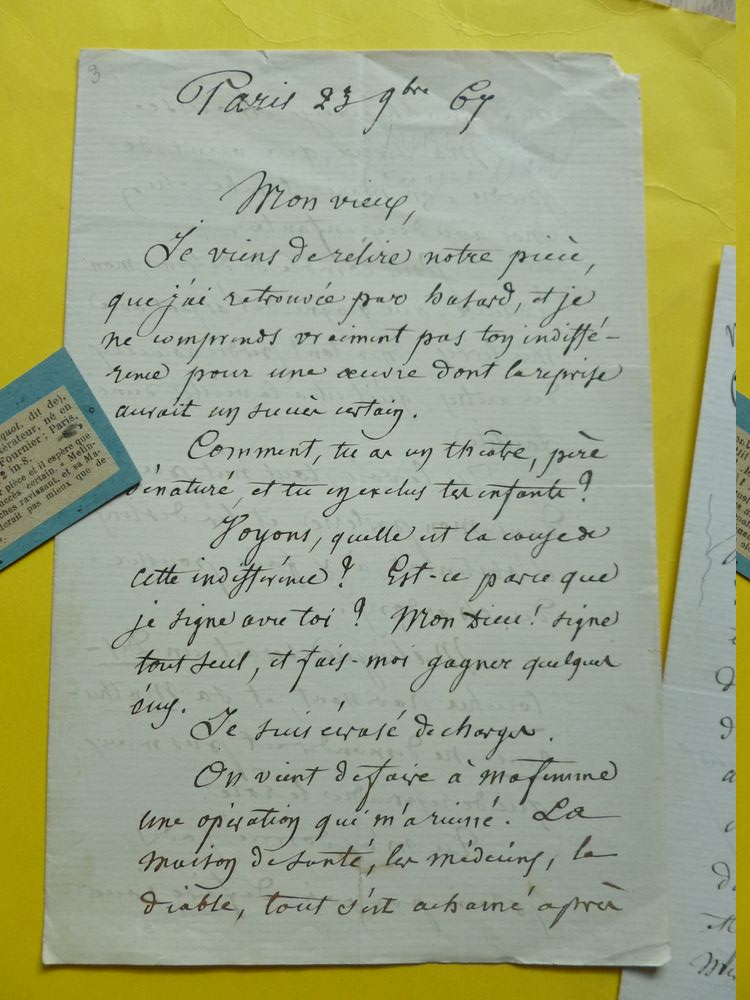 3
Paris 23 9bre 67
Mon vieux,
Je viens de relire notre pièce,
que j'ai retrouvée par hasard, et je
ne comprends vraiment pas ton indiffé-
rence pour une œuvre dont la reprise
aurait un succès certain.
Comment, tu as un théâtre, père
dénaturé, et tu en exclus tes enfants ?
Voyons, quelle est la cause de
cette indifférence ? Est-ce parce que
je signe avec toi ? Mon Dieu ! signe
tout seul, et fais-moi gagner quelques
sous.
Je suis écrasé de charges.
On vient de faire à ma femme
une opération qui m'a ruiné. La
maison de santé, les médecins, le
diable, tout s'est acharné après
quot, dit de),
térateur, né en
Fournier ; Paris,
2 in-8.
r pièce et il espère que
uccès certain. « Mettez
ches ravissant, et sa Ma-
derait pas mieux que de